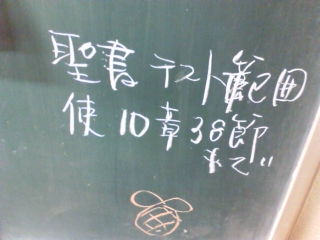 聖書 テスト範囲
使10章38節
まで